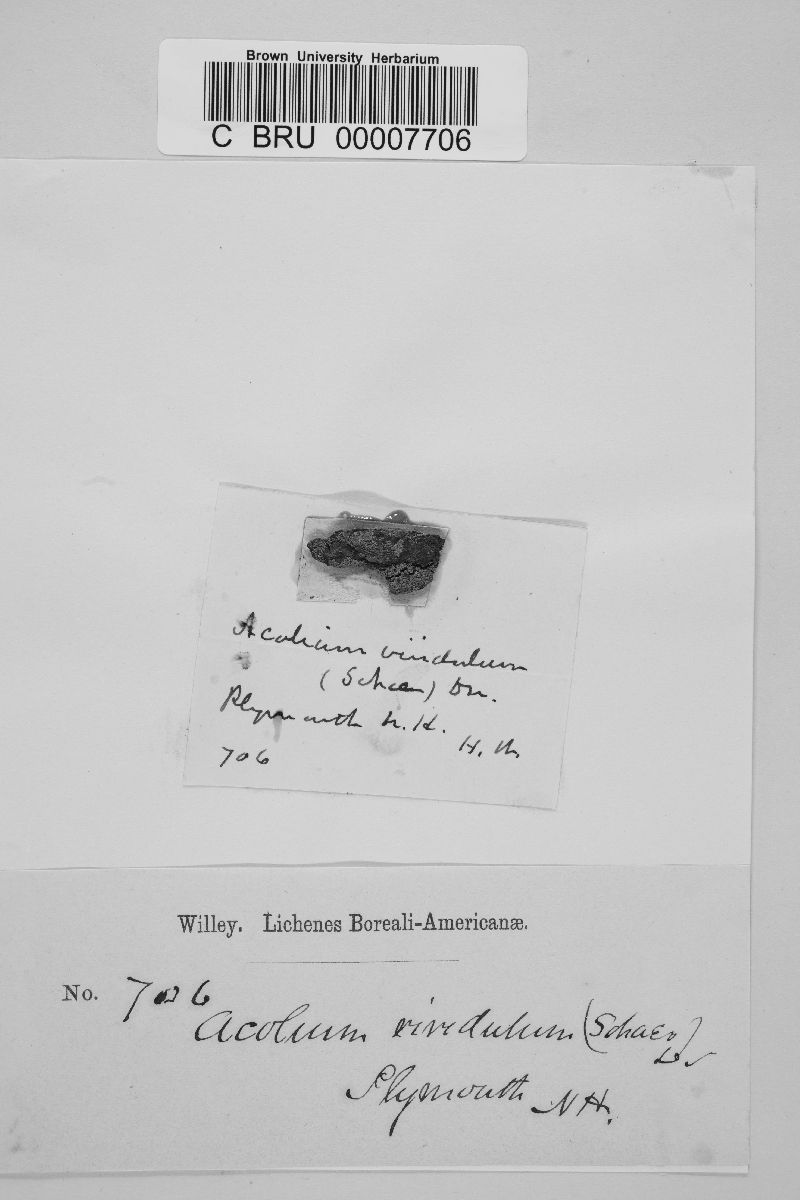 Brown University Herbarium
C BRU 00007706
Acolium viridulum
(Schaer) Dn.
Plymouth N. H.
H. W.
706
Willey. Lichenes Boreali-Americanæ.
No. 706
Acolium viridulum (Schaer)
Plymouth NH.